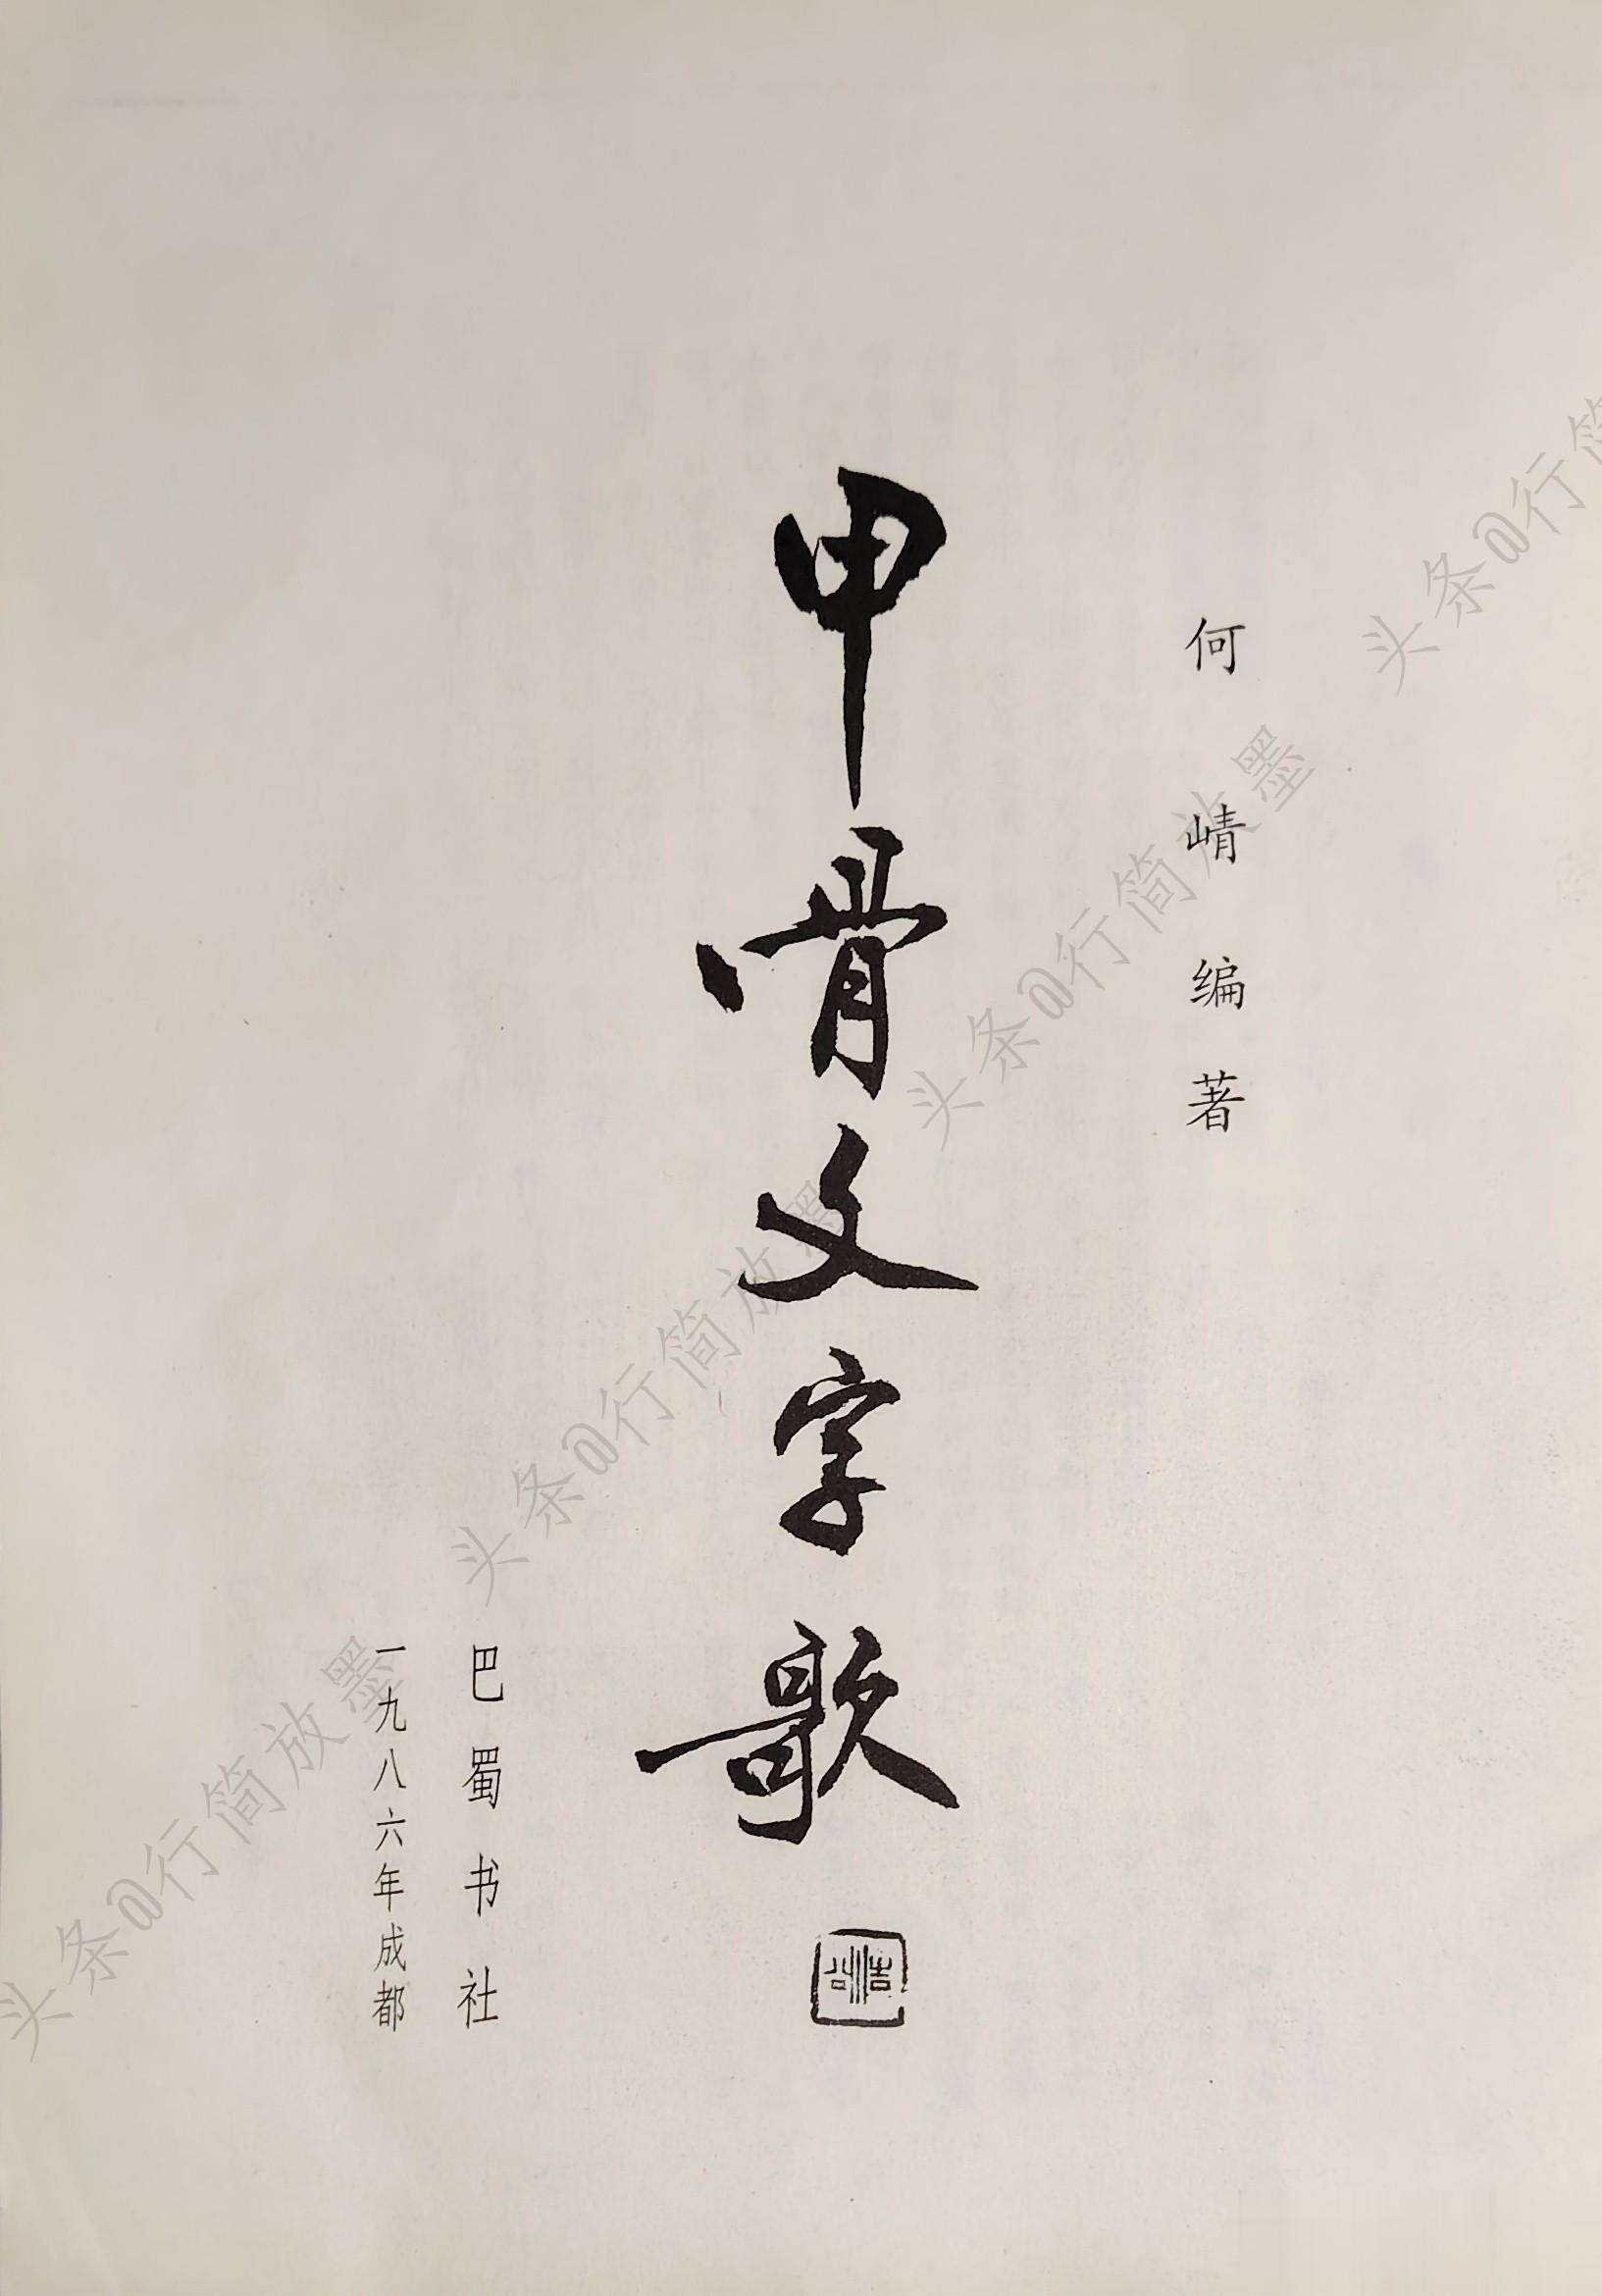 何崝编著
甲骨文字歌
巴蜀书社
一九八六年成都
头条@行简放墨
头条@行简放墨
头条@行简放墨
头条@行简